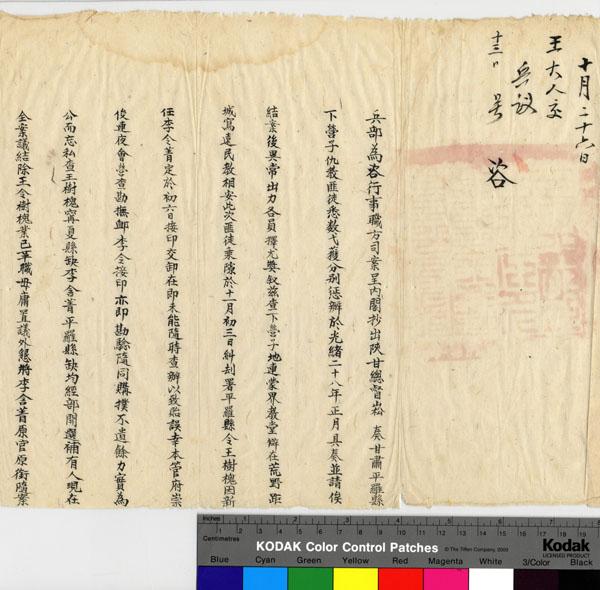 十月二十六日
王大人交
兵议
十三日 号
咨
兵部為咨行事職方司案呈內閣抄出陝甘總督崧 奏甘肅平羅縣
下營子仇教匪徒悉數弋獲分別惩辦於光緒二十八年正月具奏並請俟
結案後異常出力各員擇尤獎叙茲查下營子地連蒙界教堂僻在荒野距
城窵遠民教相安此次匪徒乘隙於十一月初三日糾刦署平羅縣令王樹槐因新
任李令菁定於初六日接印交卸在即未能隨時查辦以致貽誤幸本管府崇
俊連夜會營查勘撫卹李令接印亦即勘驗隨同購撲不遺餘力實為
公而忘私查王樹槐寧夏縣缺李含菁平羅縣缺均經部開選補有人現在
全案議結除王令樹槐業已革職毋庸置議外懇將李含菁原官原銜隨案
Inches 1 2 3 4 5 6 7 8
Centimetres 1 2 3 4 5 6 7 8 9 10 11 12 13 14 15 16 17 18 19
KODAK Color Control Patches © The Tiffen Company, 2000 Kodak
LICENSED PRODUCT
Blue Cyan Green Yellow Red Magenta White 3/Color Black